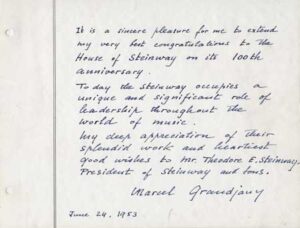 It is a sincere pleasure for me to extend
my very best congratulations to the
House of Steinway on its 100th
anniversary.
Today the Steinway occupies a
unique and significant role of
leadership throughout the
world of music.
My deep appreciation of their
splendid work and heartiest
good wishes to Mr. Theodore E. Steinway,
President of Steinway and Sons.
Marcel Grandjany
June 24, 1953